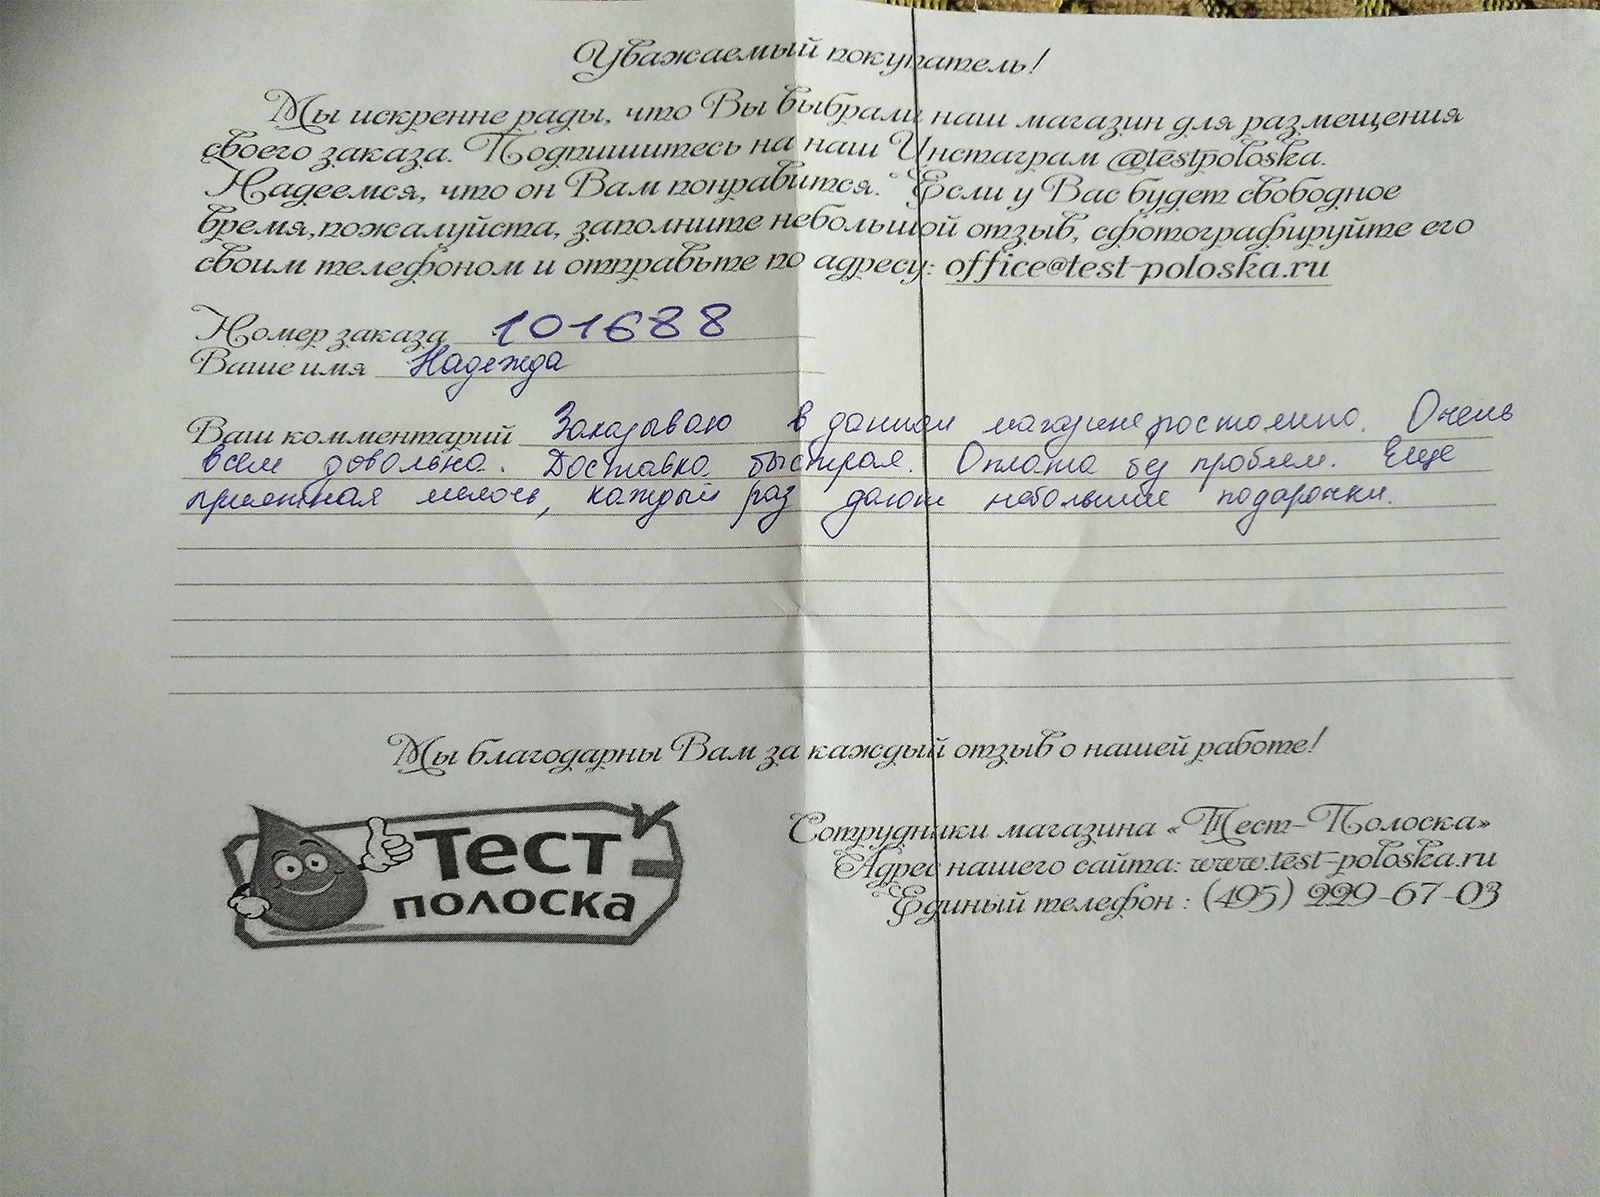 Уважаемый покупатель!
Мы искренне рады, что Вы выбрали наш магазин для размещения
своего заказа. Подпишитесь на наш Инстаграм @testpoloska.
Надеемся, что он Вам понравится. Если у Вас будет свободное
время,пожалуйста, заполните небольшой отзыв, сфотографируйте его
своим телефоном и отправьте по адресу: office@test-poloska.ru
Номер заказа 101688
Ваше имя Надежда
Ваш комментарий Заказываю в данном магазине постоянно. Очень
всем довольна. Доставка быстрая. Оплата без проблем. Еще
приятная мелочь, каждый раз дают небольшие подарочки.
Мы благодарны Вам за каждый отзыв о нашей работе!
Тест
полоска
Сотрудники магазина «Тест-Полоска»
Адрес нашего сайта: www.test-poloska.ru
Единый телефон : (495) 229-67-03